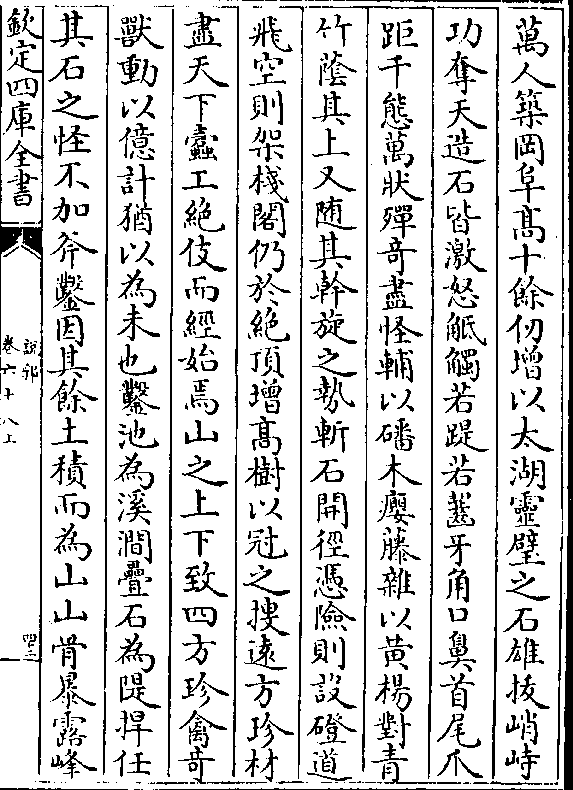 萬人築岡阜髙十餘仞增以太湖靈璧之石雄拔峭峙
功奪天造石皆激怒觝觸若踶若齧牙角口鼻首尾爪
距千態萬狀殫竒盡怪輔以磻木癭藤雜以黄楊對青
竹蔭其上又随其幹旋之勢斬石開徑憑險則設磴道
飛空則架棧閣仍於絶頂增髙樹以冠之搜遠方珍材
盡天下蠧工絶伎而經始焉山之上下致四方珍禽竒
獸動以億計猶以為未也鑿池為溪澗疊石為隄捍任
其石之怪不加斧鑿因其餘土積而為山山骨暴露峰
欽定四庫全書
說郛
卷六十八上
四三